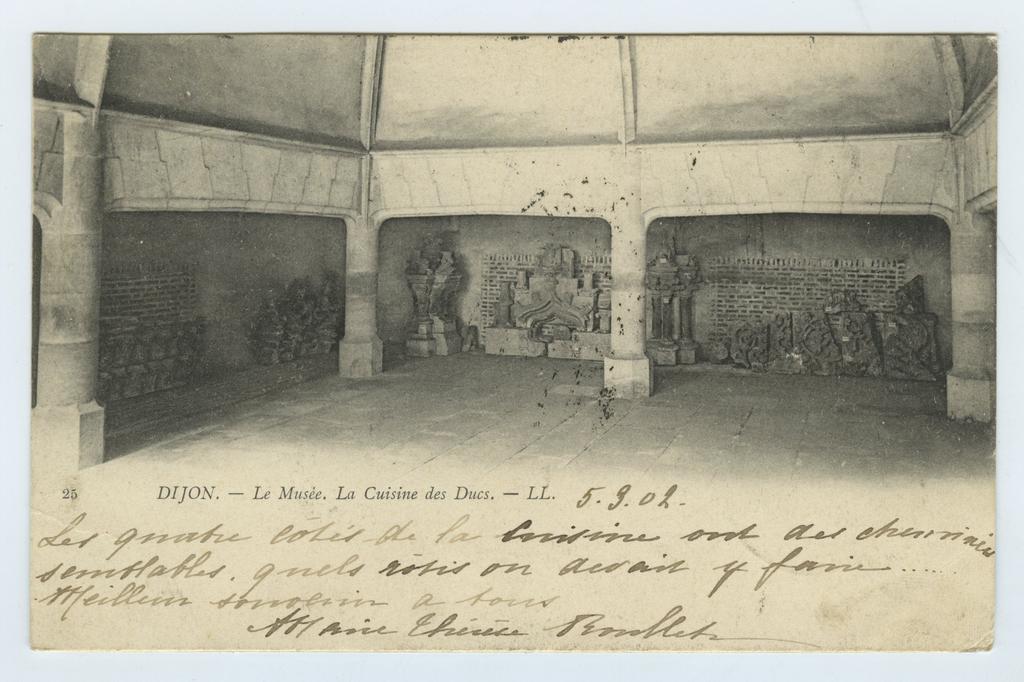 25 DIJON. — Le Musée. La Cuisine des Ducs. — LL. 5.9.02.
Les quatre côtés de la Cuisine ont des cheminées
semblables. quels rôtis on devait y faire.....
Meilleur souvenir a tous
Marie Thérèse